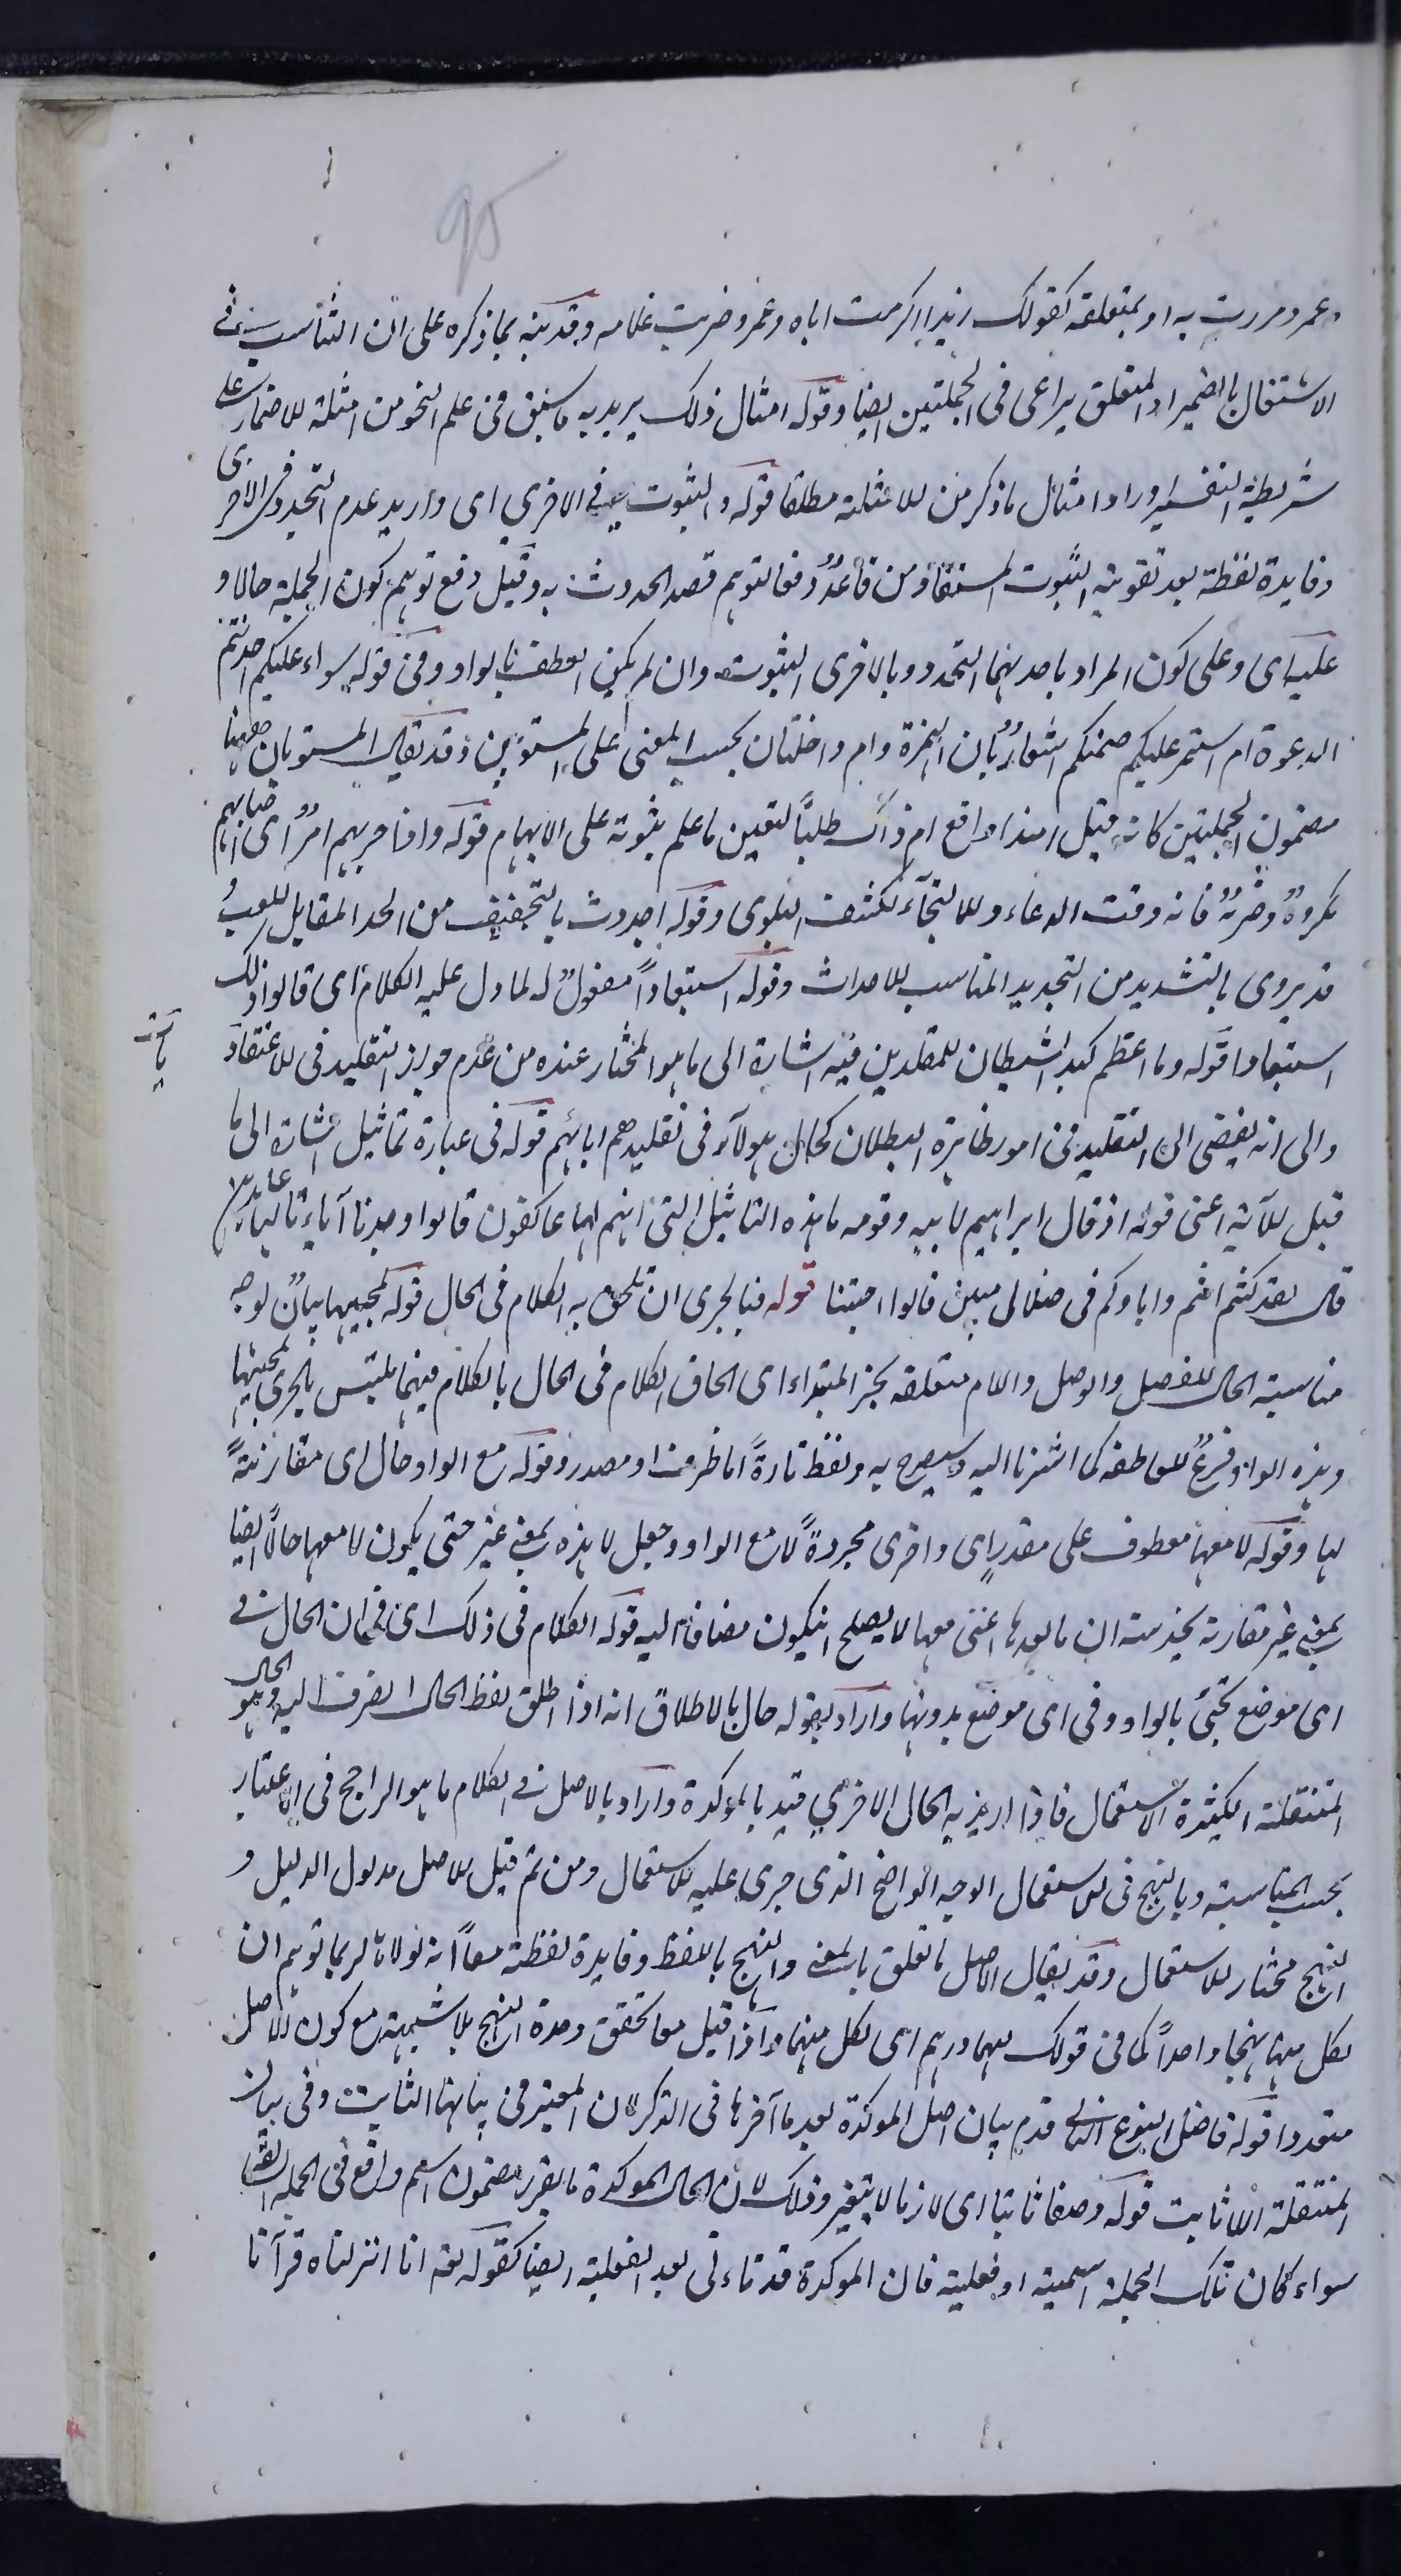 95
وعمرو مررت به او بمتعلقه كقولك زيدا اكرمت اباه وعمرو ضربت غلامه وقد نبه بما ذكره على ان التناسب في
الاشتغال بالضمير او المتعلق يراعى في الجملتين ايضا وقوله امثال ذلك يريد به ما سبق في علم النحو من امثلة الاضمار على
شريطة التفسير واراد امثال ما ذكر من الامثلة مطلقا قوله والثبوت في الاخرى اى واريد عدم التجدد في الاخرى
وفايدة لفظة بعد تقوية الثبوت المستفاد من قاعد دفعا لتوهم قصد الحدوث به وقيل دفع توهم كون الجملة حالا و
عليه اى وعلى كون المراد باحديهما التجدد وبالاخرى الثبوت وان لم يكن العطف بالواو وفى قوله سواء عليكم احدثتم
الدعوة ام استمر عليكم صمتكم اشعارٌ بان الهمزة وام داخلتان بحسب المعنى على المستويين وقد يقال المستويان ههنا
مضمون الجملتين كانه قيل اهذا واقع ام ذاك طلبًا لتعين ما علم ثبوته على الابهام قوله واذا حزبهم امرٌ اى اصابهم
مكروهٌ وضرٌّ فانه وقت الدعاء والالتجآء لكشف البلوى وقوله اجددت بالتخفيف من الجد المقابل للعب
قد يروى بالتشديد من التجديد المناسب للاحداث وقوله استبعادًا مفعولٌ له لما دل عليه الكلام اى قالوا ذلك
استبعادا قوله وما اعظم كيد الشيطان للمقلدين فيه اشارة الى ما هو المختار عنده من عدم جواز التقليد فى الاعتقاد
والى انه يفضى الى التقليد فى امور ظاهرة البطلان كحال هولآء فى تقليدهم ابائهم قوله فى عبارة تماثيل اشارة الى ما
قبل الآية اعنى قوله اذ قال ابراهيم لابيه وقومه ما هذه التماثيل التى انتم لها عاكفون قالوا وجدنا آباءنا لها عابدين
قال لقد كنتم انتم واباوكم فى ضلال مبين قالوا اجئتنا قوله فبالحرى ان تلحق به الكلام فى الحال قوله لمجيئها بيانٌ لوجه
مناسبة الحال للفصل والوصل واللام متعلقة بخبر المبتداء اى الحاق الكلام فى الحال بالكلام فيهما ملتبس بالحرى لمجيئها
وهذه الواو فرعٌ للعاطفة كما اشرنا اليه وسيصرح به ولفظ تارةً اما ظرف او مصدر وقوله مع الواو حال اى مقارنةً
لها وقوله لا معها معطوف على مقدرٍ اى واخرى مجردةً لا مع الواو وجعل لا هذه بمعنى غير حتى يكون لا معها حالًا ايضا
بمعنى غير مقارنة يخدشه ان ما بعدها اعنى معها لا يصلح ان يكون مضافًا اليه قوله الكلام فى ذلك اى فى ان الحال فى
اى موضع تجئ بالواو وفى اى موضع بدونها واراد بقوله حال بالاطلاق انه اذا اطلق لفظ الحال انصرف اليه وهو الحال
المنتقلة الكثيرة الاستعمال فاذا اريد به الحال الاخرى قيد بالموكدة واراد بالاصل فى الكلام ما هو الراجح فى الاعتبار
بحسب المناسبة وبالنهج فى الاستعمال الوجه الواضح الذى جرى عليه الاستعمال ومن ثم قيل الاصل مدلول الدليل و
النهج مختار الاستعمال وقد يقال الاصل ما تعلق بالمعنى والنهج باللفظ وفايدة لفظة معًا انه لولاها لربما توهم ان
لكل منهما نهجا واحدًا كما فى قولك لهما درهم اى لكل منهما واذا قيل معا تحقق وحدة النهج بلا شبهة مع كون الاصل
متعددا قوله فاصل النوع الثانى قدم بيان اصل الموكدة بعد ما آخرها فى الذكر لان المعتبر فى بيانها الثابت وفى بيان
المنتقلة اللا ثابت قوله وصفا ثابتا اى لازما لا يتغير وذلك لان الحال الموكدة ما يقرر مضمون اسم واقع فى الجملة
سواء كان تلك الجملة اسمية او فعلية فان الموكدة قد تاءتى بعد الفعلية ايضا كقوله تعه انا انزلناه قرآنا